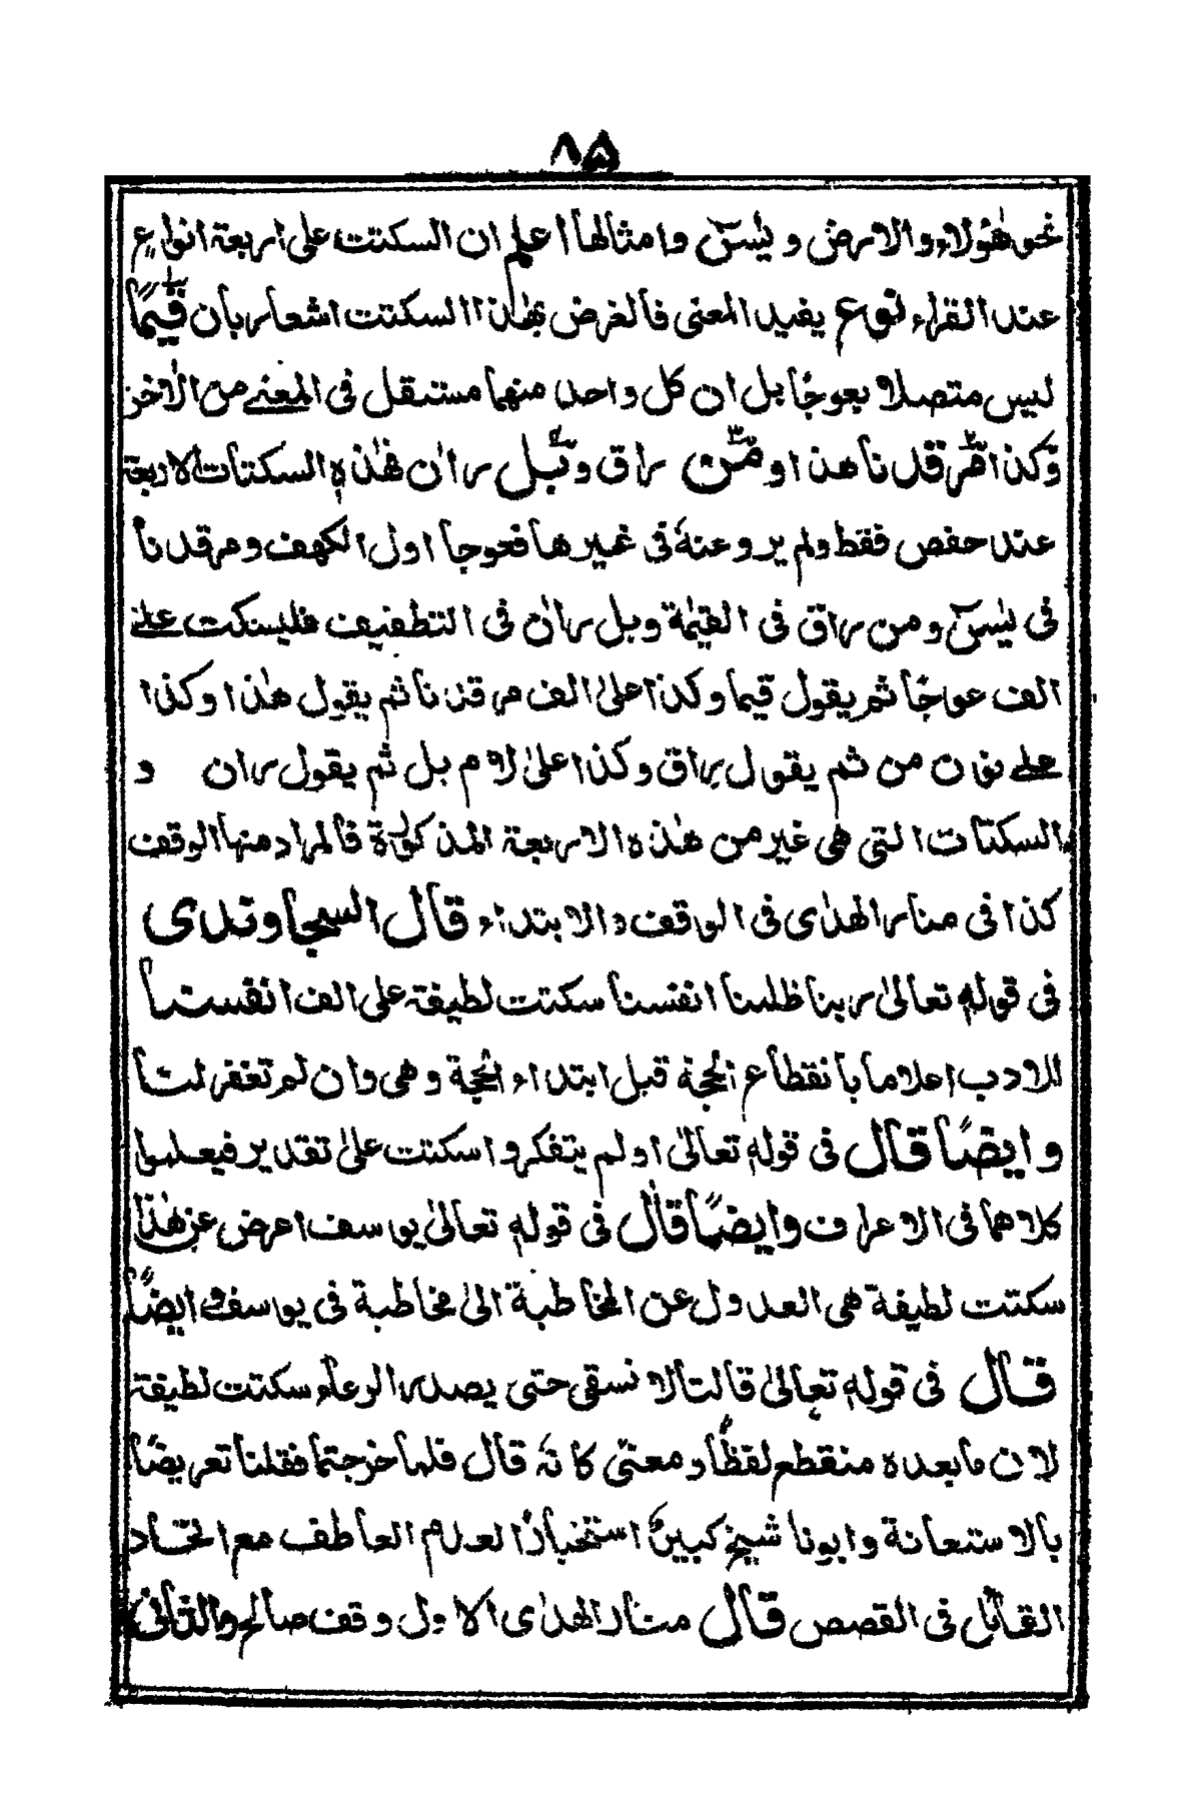 ٨٥
نحو هٰؤلاء والارض و يٰسٓ وامثالها اعلم ان السكتت على اربعة انواع
عند القراء نوع يفيد المعنى فالغرض بهٰذا السكتت اشعار بان قيمًا
ليس متصلا بعوجًا بل ان كل واحد منهما مستقل فى المعنے من الاٰخر
وكذا مّرقدنا هذا و مَنْ راق و بَل ران فهٰذه السكتات الاربعة
عند حفص فقط ولم يروعنهٗ فى غيرها فعوجا اول الكهف ومرقدنا
فى يٰسٓ ومن راق فى القيٰمة وبل ران فى التطفيف فليسكت علے
الف عوجًا ثم يقول قيما وكذا علىٰ الف مرقدنا ثم يقول هٰذا وكذا
علے نون من ثم يقول راق وكذا علىٰ لام بل ثم يقول ران و
السكتات التى هى غير من هٰذه الاربعة المذكورة فالمراد منها الوقف
كذا فى منار الهدٰى فى الوقف والابتداء قال السجاوندى
فى قولهٖ تعالىٰ ربنا ظلمنا انفسنا سكتت لطيفة على الف انفسنا
للادب اعلاما بانقطاع الحجة قبل ابتداء الحجة وهى وان لم تغفر لنا
وايضًا قال فى قولهٖ تعالىٰ اولم يتفكروا سكتت علىٰ تقدير فيعلموا
كلاهما فى الاعراف وايضًا قال فى قولهٖ تعالىٰ يوسف اعرض عن هٰذا
سكتت لطيفة هى العدول عن المخاطبة الىٰ مخاطبة فى يوسف وايضًا
قال فى قولهٖ تعالىٰ قالتا لا نسقى حتى يصدر الرعاء سكتت لطيفة
لان مابعده منقطع لفظًا ومعنىً كانهٗ قال فلما خرجتما فقلنا تعريضًا
بالاستعانة وابونا شيخ كبيرٌ استخبارًا لعدم العاطف مع اتحاد
القائل فى القصص قال منار الهدٰى الاول وقف صالح والثانى